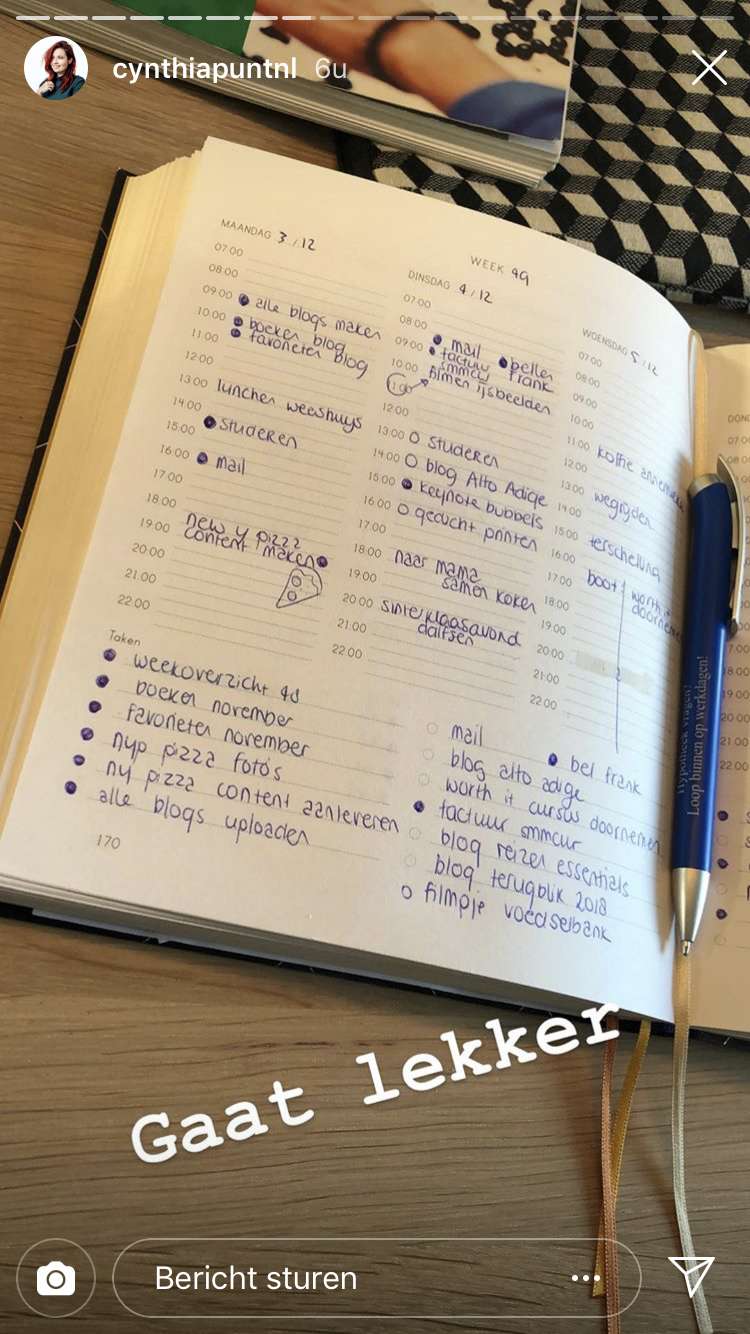 cynthiapuntnl 6u
WEEK 49
MAANDAG 3/12
07:00
08:00
09:00 alle blogs maken
10:00 boeken blog
11:00 favorieten blog
12:00
13:00 lunchen weeshuys
14:00
15:00 studeren
16:00 mail
17:00
18:00
19:00 new y pizza
content maken
20:00
21:00
22:00
DINSDAG 4/12
07:00
08:00
09:00 mail bellen
factuur frank
10:00 smmcu
11:00 filmen ijsbeelden
12:00
13:00 studeren
14:00 blog Alto Adige
15:00 keynote bubbels
16:00 gedicht printen
17:00
18:00 naar mama
19:00 samen koken
20:00 sinterklaasavond
21:00 dalfsen
22:00
WOENSDAG 5/12
07:00
08:00
09:00
10:00
11:00 koffie
12:00
13:00 wegrijden
14:00
15:00 terschelling
16:00
17:00 boot worth it
18:00 doornemen
19:00
20:00
21:00
22:00
Taken
weekoverzicht 48
boeken november
favorieten november
nyp pizza foto's
ny pizza content aanleveren
alle blogs uploaden
mail
bel frank
blog alto adige
worth it cursus doornemen
factuur smmcur
blog reizen essentials
blog terugblik 2018
filmpje voedselbank
170
Hypotheek vragen?
Loop binnen op werkdagen!
Gaat lekker
Bericht sturen